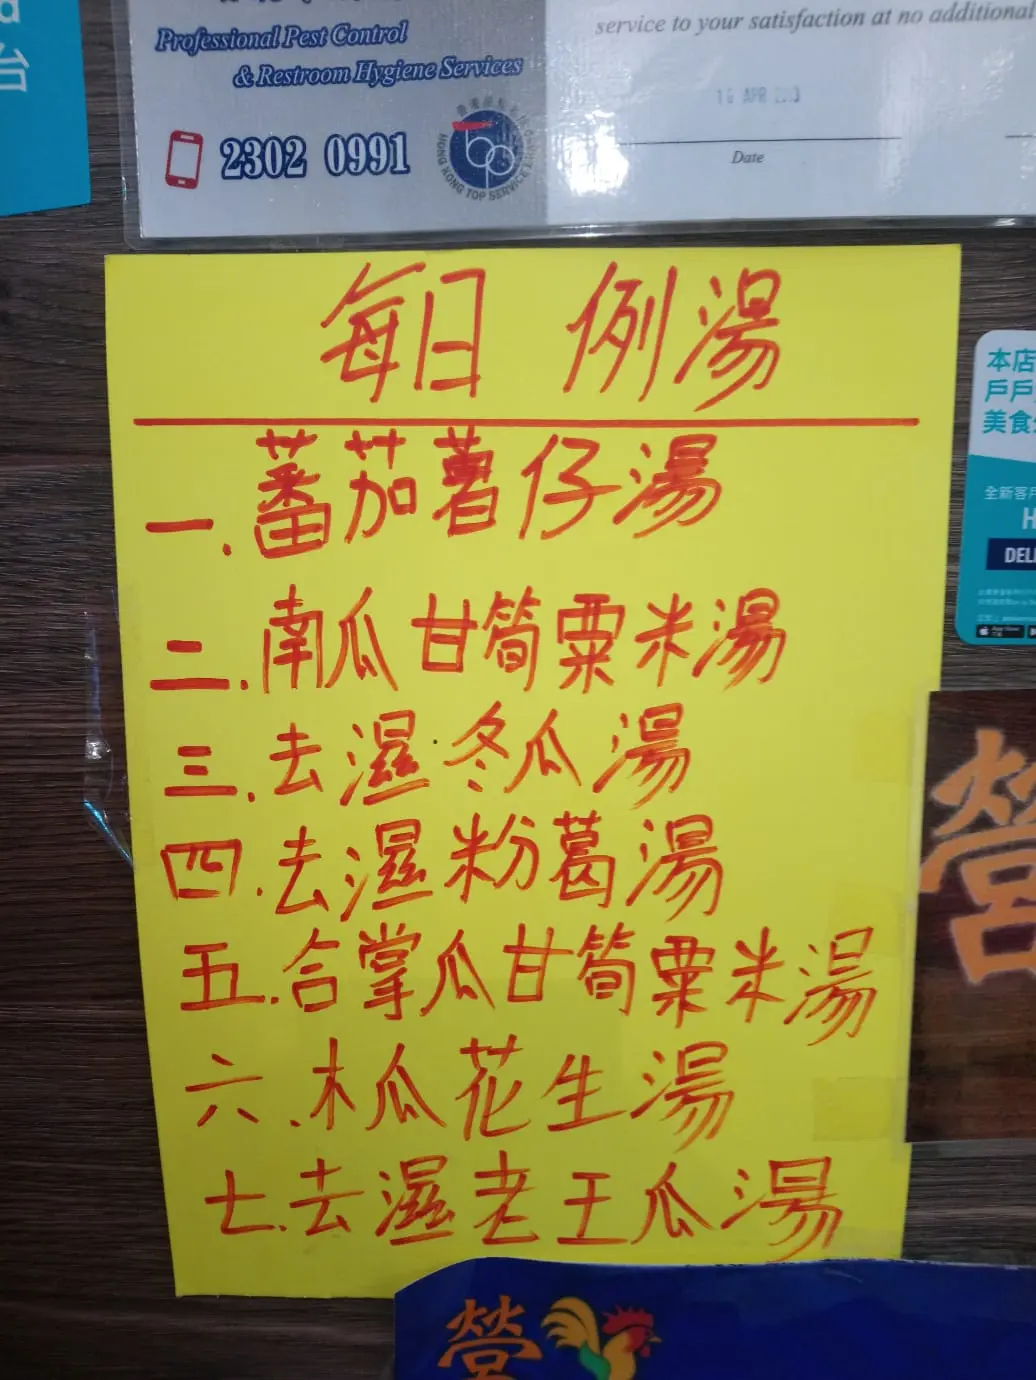 Professional Pest Control
& Restroom Hygiene Services
2302 0991
HONG KONG TOP SERVICE
service to your satisfaction at no additional
Date
台
每日 例湯
一.蕃茄薯仔湯
二.南瓜甘筍粟米湯
三.去濕冬瓜湯
四.去濕粉葛湯
五.合掌瓜甘筍粟米湯
六.木瓜花生湯
七.去濕老王瓜湯
本店
戶戶
美食
全新客戶
H
DELI
營
營